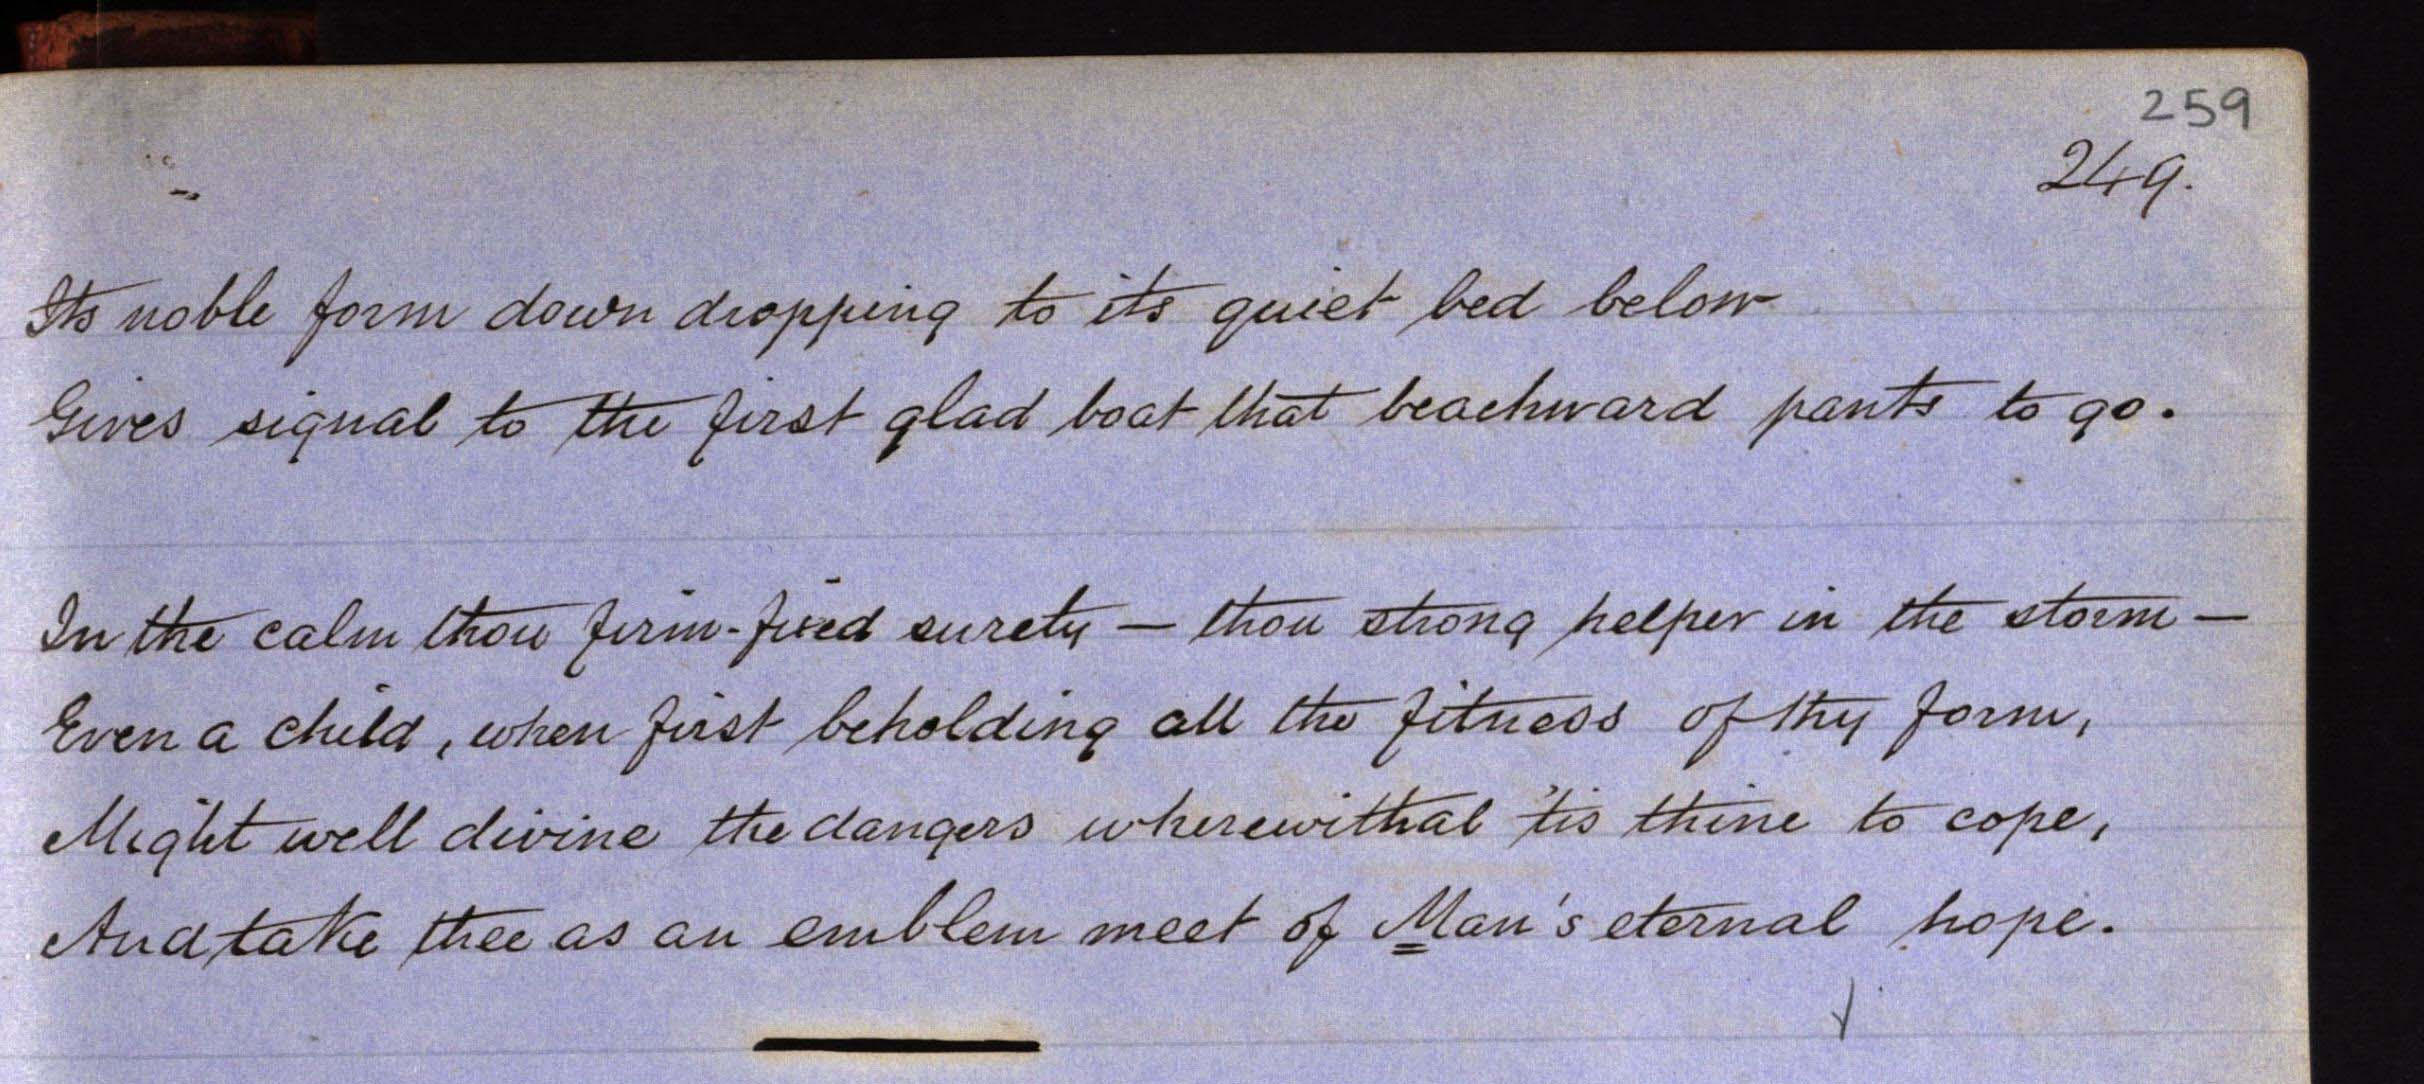 259
249.
Its noble form down dropping to its quiet bed below
Gives signal to the first glad boat that beachward pants to go.
In the calm thou firm-fixed surety — thou strong helper in the storm —
Even a child, when first beholding all the fitness of thy form,
Might well divine the dangers wherewithal 'tis thine to cope,
And take thee as an emblem meet of Man's eternal hope.